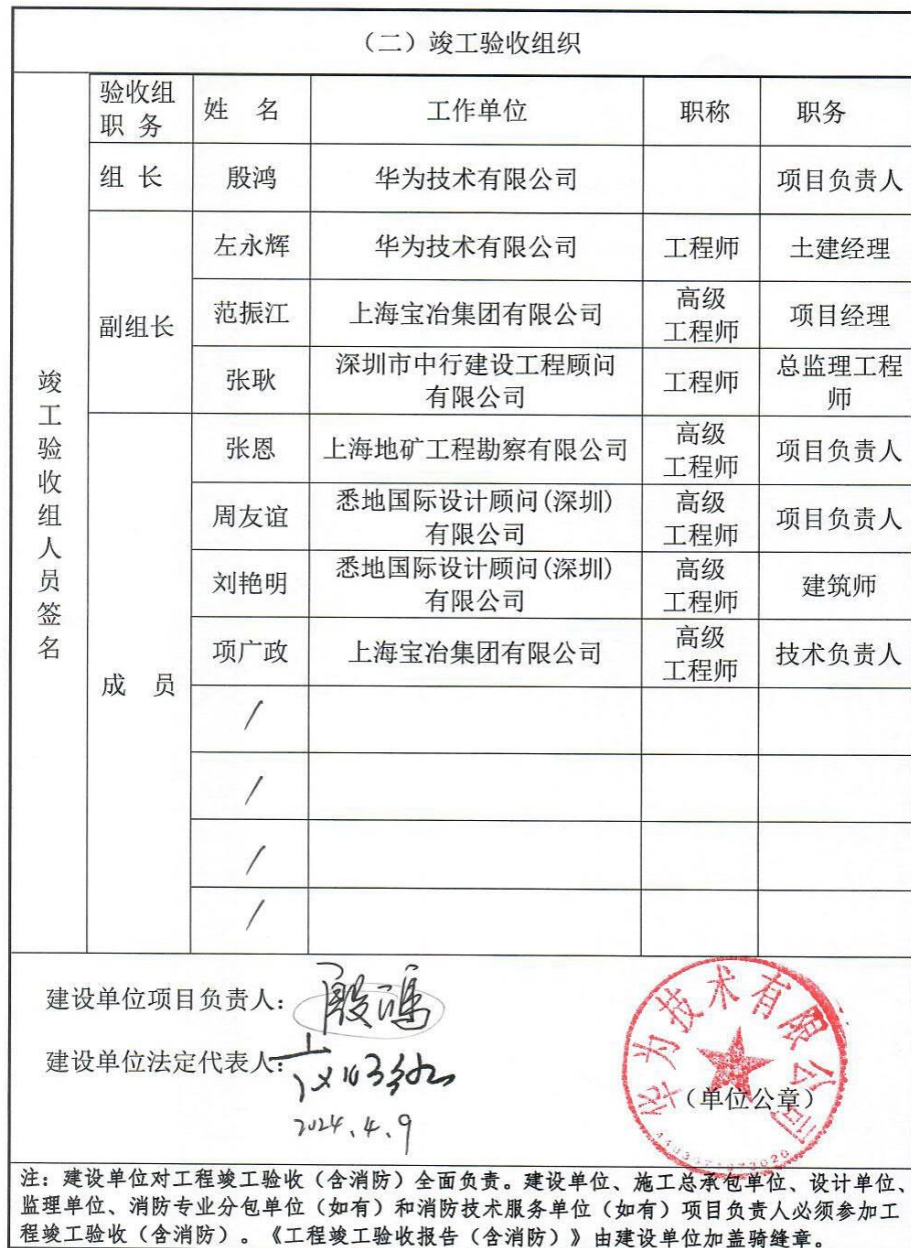 （二）竣工验收组织
竣工验收组人员签名
验收组职务 姓 名 工作单位 职称 职务
组 长 殷鸿 华为技术有限公司 项目负责人
副组长
左永辉 华为技术有限公司 工程师 土建经理
范振江 上海宝冶集团有限公司 高级工程师 项目经理
张耿 深圳市中行建设工程顾问有限公司 工程师 总监理工程师
成 员
张恩 上海地矿工程勘察有限公司 高级工程师 项目负责人
周友谊 悉地国际设计顾问(深圳)有限公司 高级工程师 项目负责人
刘艳明 悉地国际设计顾问(深圳)有限公司 高级工程师 建筑师
项广政 上海宝冶集团有限公司 高级工程师 技术负责人
/
/
/
/
建设单位项目负责人：殷鸿
建设单位法定代表人：
2024.4.9
华为技术有限公司
（单位公章）
注：建设单位对工程竣工验收（含消防）全面负责。建设单位、施工总承包单位、设计单位、
监理单位、消防专业分包单位（如有）和消防技术服务单位（如有）项目负责人必须参加工
程竣工验收（含消防）。《工程竣工验收报告（含消防）》由建设单位加盖骑缝章。